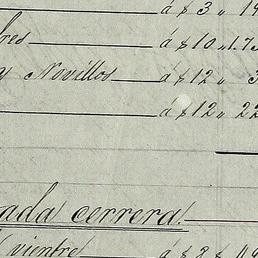 á $ 3 „ 19
res á $ 10 „ 175
y Novillos á $ 12 „ 3
á $ 12 „ 22
ada cerrera
vientre á $ 8 „